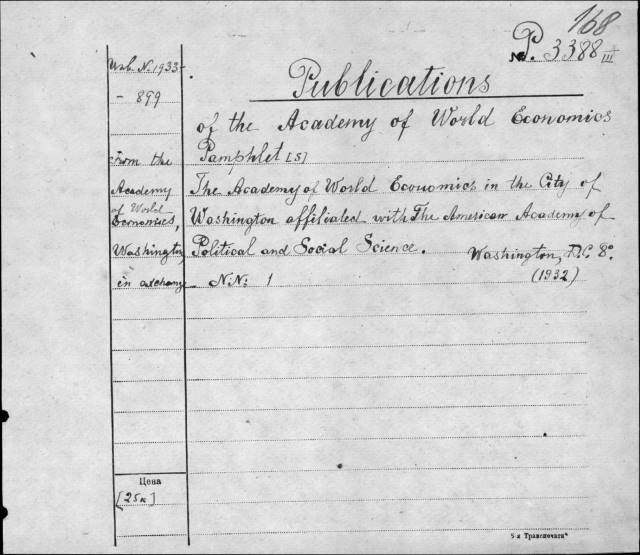 168
№ P. 3388 III
Инв. N. 1933-
- 899
Publications
of the Academy of World Economics
From the
Academy
of World
Economics,
Washington,
in exchange
Pamphlet [S]
The Academy of World Economics in the City of
Washington affiliated with The American Academy of
Political and Social Science. Washington, D.C. 8º.
(1932)
N.N: 1
Цена
[25к]
5-я Транспечати"